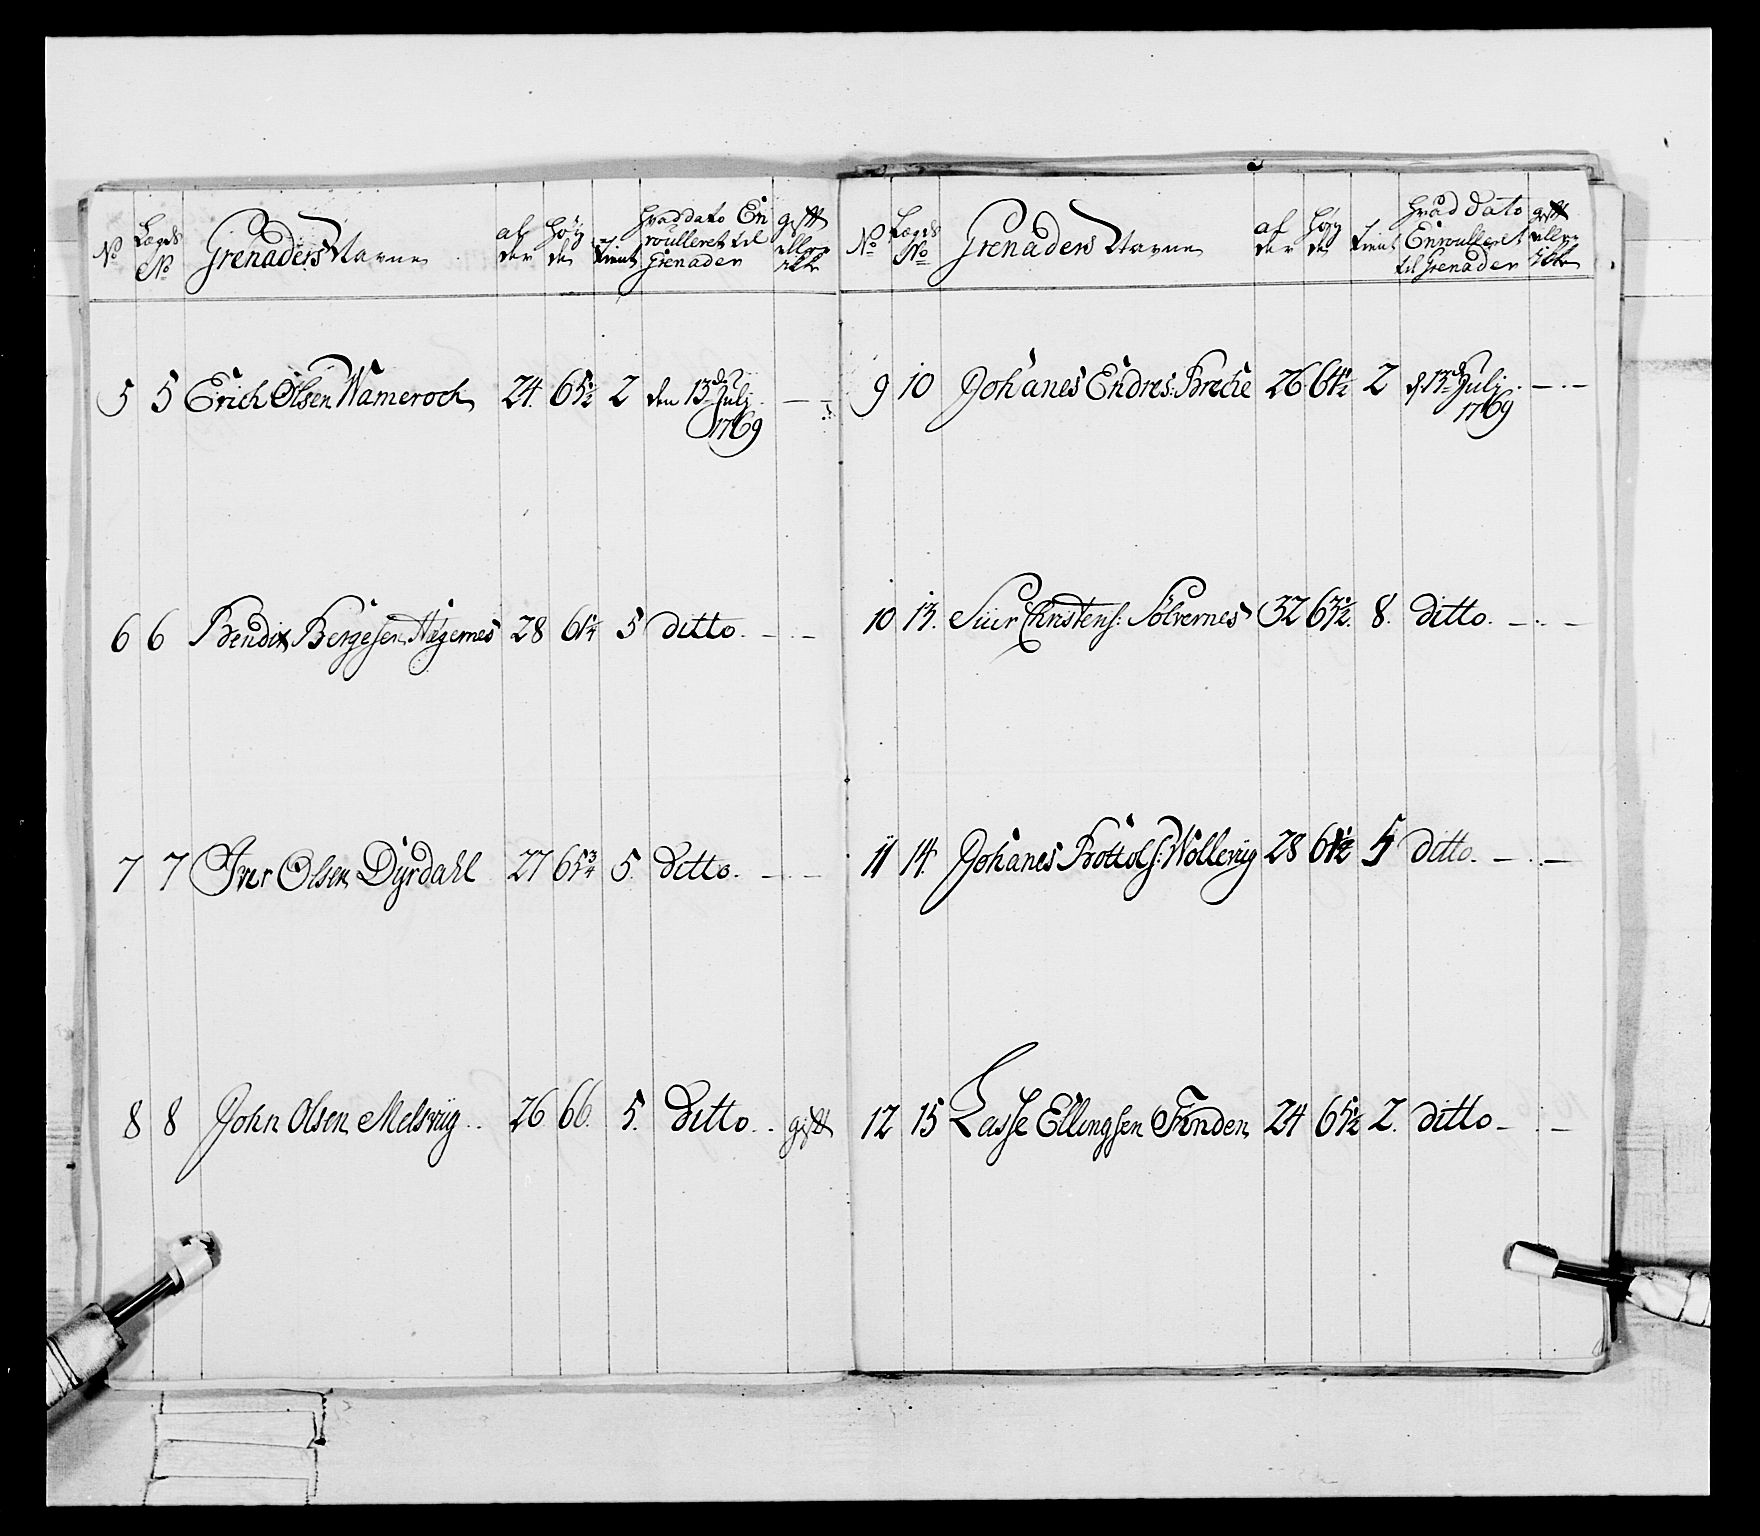 No
Lægds No
Grenaders Navne
al der
Høy de
tient
Hvad dato En roulleret til Grenader
gift eller ikke
5 5 Erich Olsen Wameroch 24. 65½ 2 den 13de Julj 1769 — —
6 6 Bendix Bergesen Hægernes 28 61¼ 5 ditto. — —
7 7 Iver Olsen Dÿrdahl 27 65¾ 5. ditto. — —
8 8 John Olsen Melsvüg .. 26 66. 5. ditto. . gift
No
Lægds No
Grenaders Navne
al der
Høy de
tient
Hvad dato Enroulleret til Grenader
gift eller ikke
9 10 Johanes Endres: Breche 26 64½ 2 d. 13de Julj. 1769 — · —
10 13. Siur Christens: Sölvernes 32 63½. 8. ditto. — · —
11 14. Johanes Bottols: Wöllevüg 28 61½ 5 ditto. — · —
12 15 Lasse Ellingsen Finden 24 65½ 2. ditto — · —